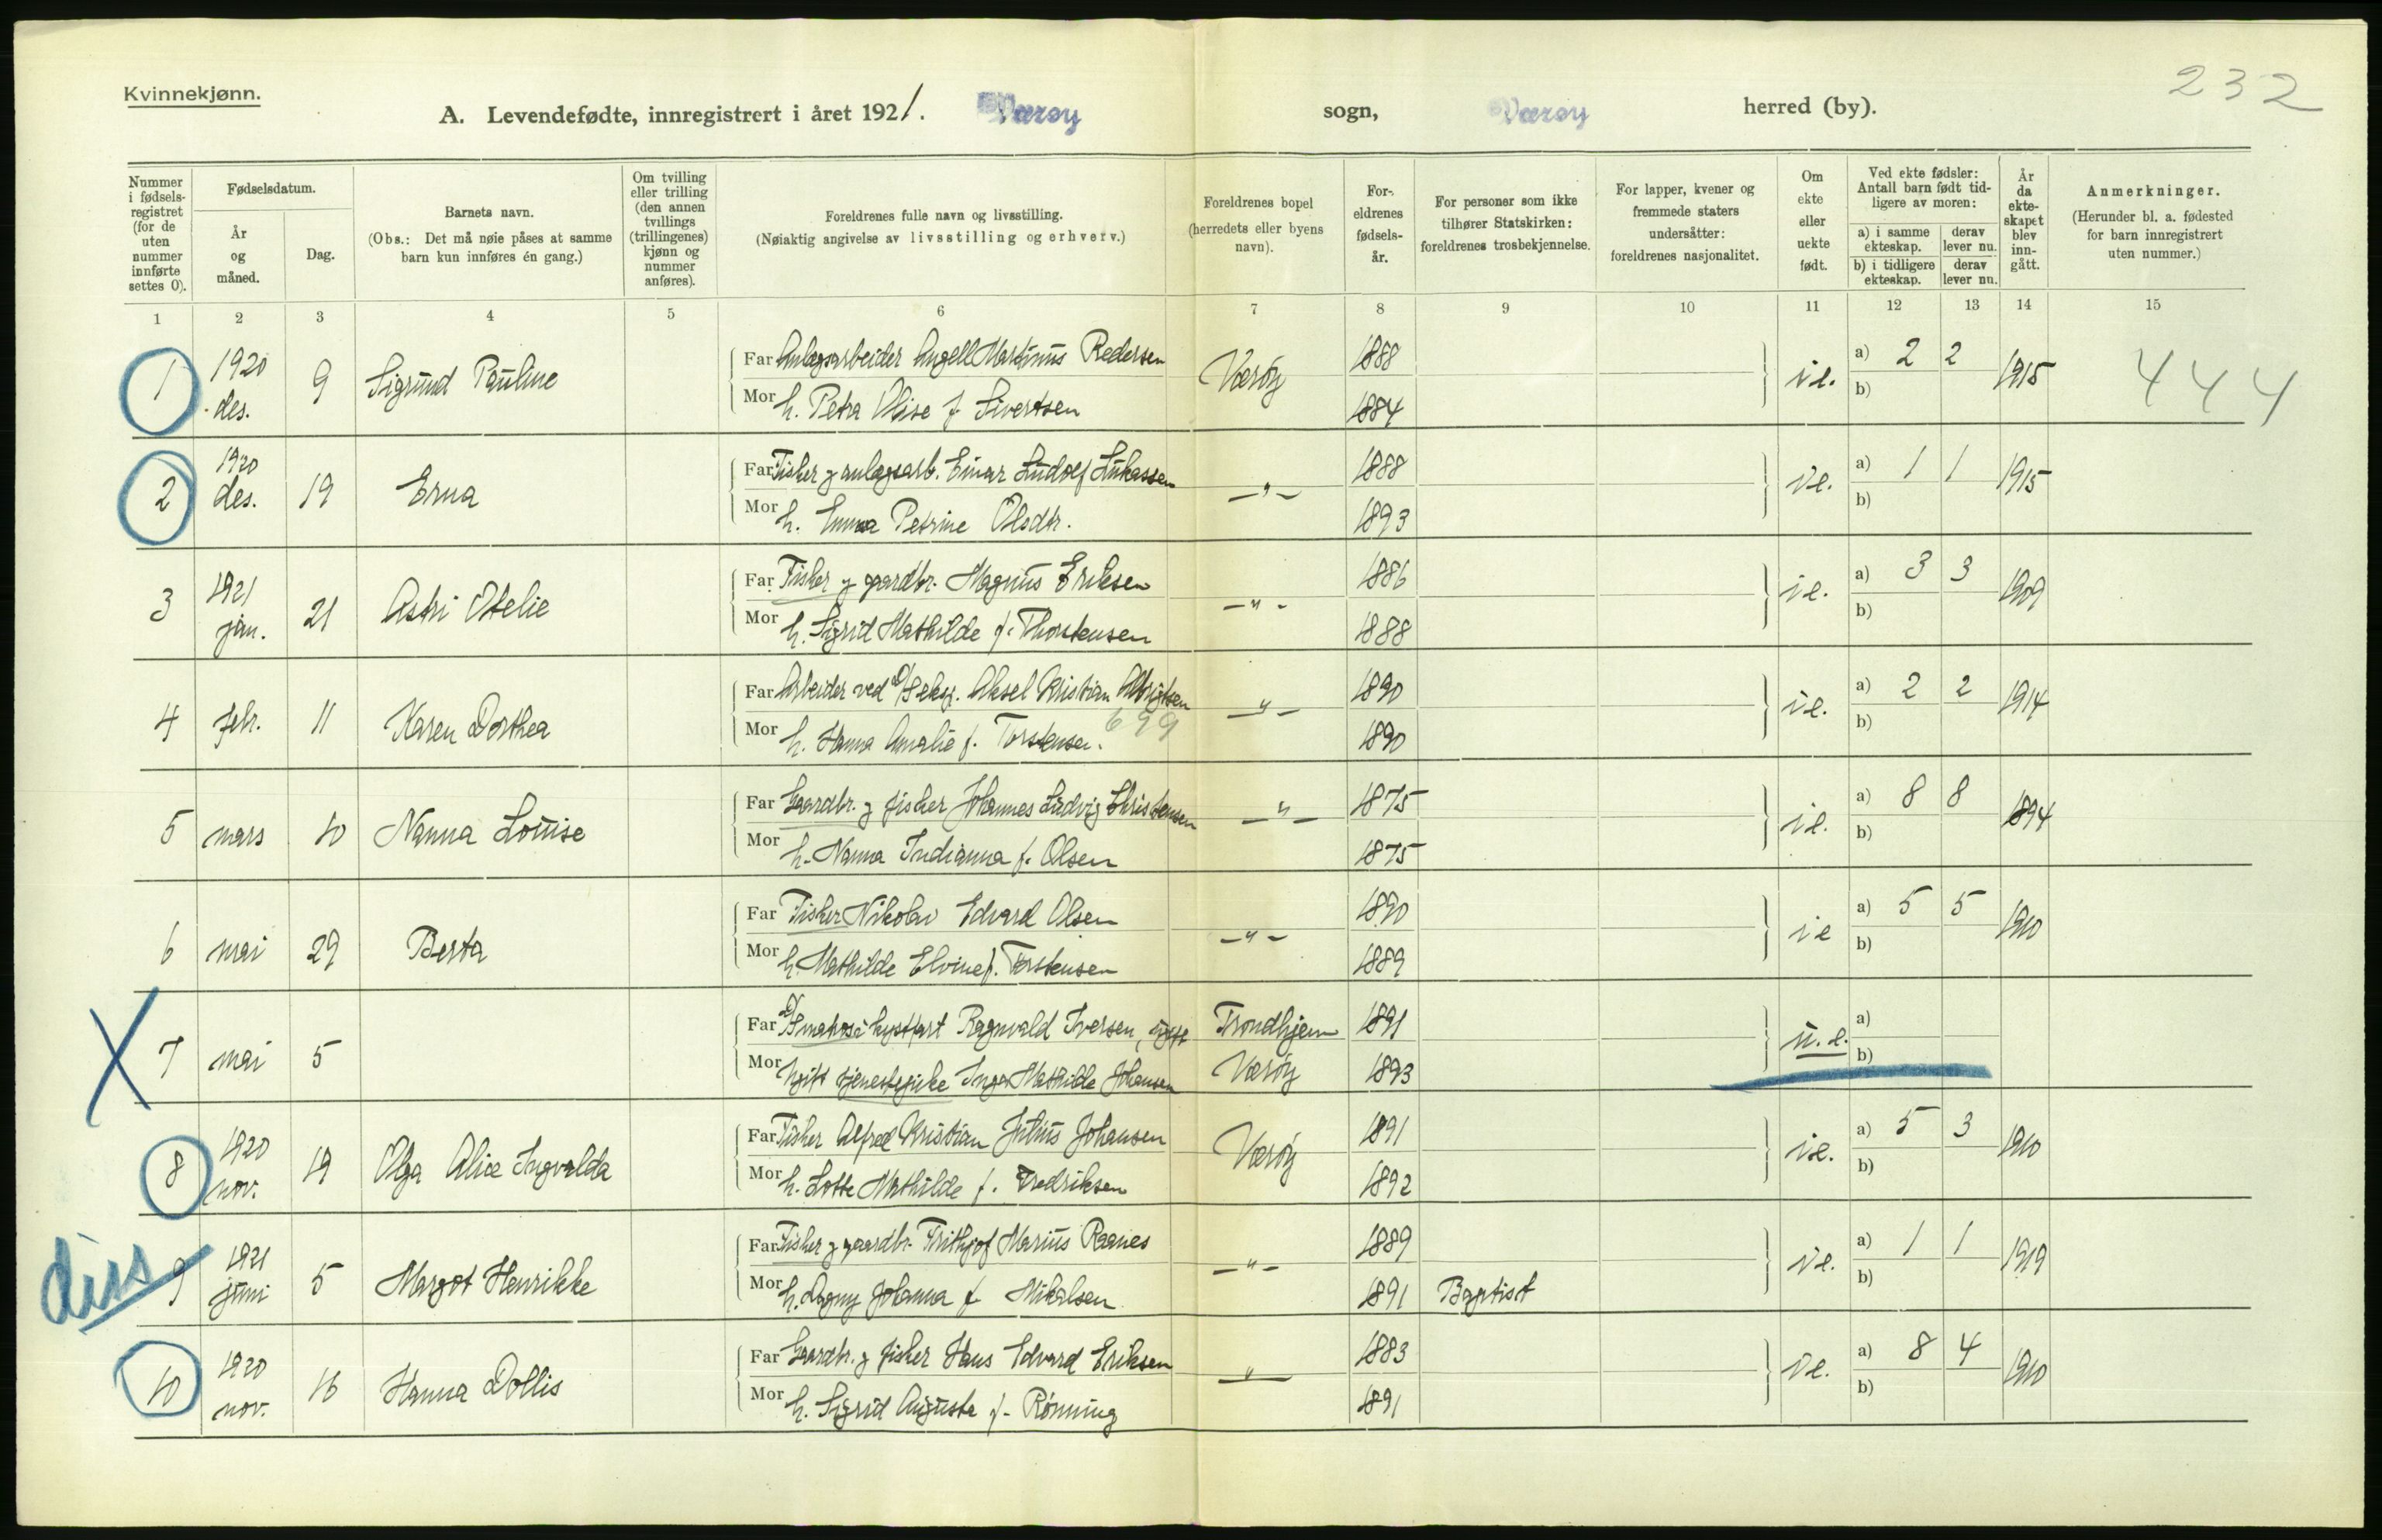 Kvinnekjønn.
232
A. Levendefødte, innregistrert i året 1921. Værøy sogn, Værøy herred (by).
Nummer i fødselsregistret (for de uten nummer innførte settes 0).
Fødselsdatum.
År og måned.
Dag.
Barnets navn.
(Obs.: Det må nøie påses at samme barn kun innføres én gang.)
Om tvilling eller trilling (den annen tvillings (trillingenes) kjønn og nummer anføres).
Foreldrenes fulle navn og livsstilling.
(Nøiaktig angivelse av livsstilling og erhverv.)
Foreldrenes bopel (herredets eller byens navn).
For-eldrenes fødsels-år.
For personer som ikke tilhører Statskirken: foreldrenes trosbekjennelse.
For lapper, kvener og fremmede staters undersåtter: foreldrenes nasjonalitet.
Om ekte eller uekte født.
Ved ekte fødsler: Antall barn født tidligere av moren:
a) i samme ekteskap. derav lever nu.
b) i tidligere ekteskap. derav lever nu.
År da ekteskapet blev inngått.
Anmerkninger.
(Herunder bl. a. fødested for barn innregistrert uten nummer.)
1 2 3 4 5 6 7 8 9 10 11 12 13 14 15
1 1920 des. 9 Sigrund Pauline
Far Anlegsarbeider Angell Martinus Pedersen Værøy 1888 i e. a) 2 2 1915 444
Mor h. Petra Olise f. Sivertsen 1884 b)
2 1920 des. 19 Erna
Far Fisker g anlegsarb. Einar Ludolf Lukassen —"— 1888 i e. a) 1 1 1915
Mor h. Emma Petrine Olsdtr. 1893 b)
3 1921 jan. 21 Astri Otelie
Far Fisker g gaardbr. Magnus Eriksen —"— 1886 i e. a) 3 3 1909
Mor h. Sigrid Mathilde f. Thorstensen 1888 b)
4 febr. 11 Karen Dorthea
Far Arbeider ved Aksel Kristian Albrigtsen —"— 1890 i e. a) 2 2 1914
Mor h. Hanna Amalie f. Torstensen. 699 1890 b)
5 mars 10 Nanna Louise
Far Gaardbr. g fisker Johannes Ludvig Christensen —"— 1875 i e. a) 8 8 1894
Mor h. Nanna Indianna f. Olsen 1875 b)
6 mai 29 Berta
Far Fisker Nikolai Edvard Olsen —"— 1890 i e a) 5 5 1910
Mor h. Mathilde Elvine f. Torstensen 1889 b)
X 7 mai 5
Far matros i kystfart Ragnvald Iversen, ugift Trondhjem 1891 u. e. a)
Mor Ugift tjenestepike Inga Mathilde Johansen Værøy 1893 b)
8 1920 nov. 19 Olga Alice Ingvalda
Far Fisker Alfred Kristian Julius Johansen Værøy 1891 i e. a) 5 3 1910
Mor h. Lotte Mathilde f. Fredriksen 1892 b)
diss 9 1921 juni 5 Margot Henrikke
Far Fisker g gaardbr. Frithjof Marius Raanes —"— 1889 i e. a) 1 1 1919
Mor h. Dagny Johanna f Mikalsen 1891 Baptist b)
10 1920 nov. 16 Hanna Dollis
Far Gaardbr. g fisker Hans Edvard Eriksen —"— 1883 i e. a) 8 4 1910
Mor h. Sigrid Augusta f. Rønning 1891 b)